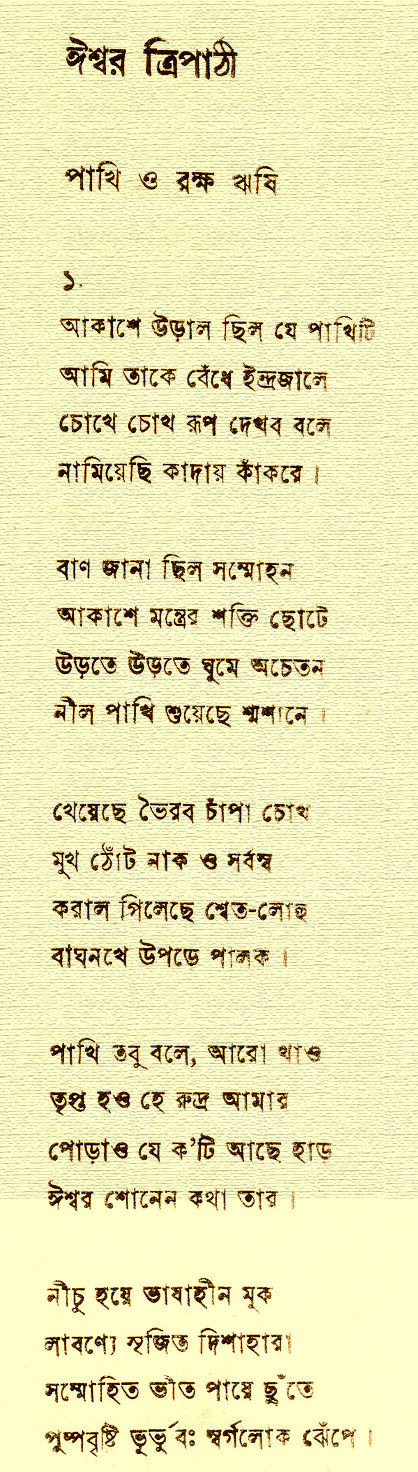 ঈশ্বর ত্রিপাঠী
পাখি ও রক্ষ ঋষি
১.
আকাশে উড়াল ছিল যে পাখিটি
আমি তাকে বেঁধে ইন্দ্রজালে
চোখে চোখ রূপ দেখব বলে
নামিয়েছি কাদায় কাঁকরে।
বাণ জানা ছিল সম্মোহন
আকাশে মন্ত্রের শক্তি ছোটে
উড়তে উড়তে ঘুমে অচেতন
নীল পাখি শুয়েছে শ্মশানে।
খেয়েছে ভৈরব চাঁপা চোখ
মুখ ঠোঁট নাক ও সর্বস্ব
করাল গিলেছে শ্বেত-লোহু
বাঘনখে উপড়ে পালক।
পাখি তবু বলে, আরো খাও
তৃপ্ত হও হে রুদ্র আমার
পোড়াও যে ক’টি আছে হাড়
ঈশ্বর শোনেন কথা তার।
নীচু হয়ে ভাষাহীন মূক
লাবণ্যে সৃজিত দিশাহারা
সম্মোহিত ভীত পায়ে ছুঁতে
পুষ্পবৃষ্টি ভূর্ভুবঃ স্বর্গলোক ঝেঁপে।